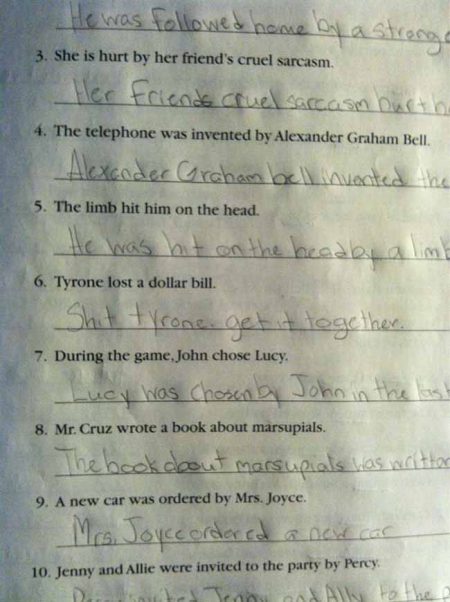 He was followed home by a strange
3. She is hurt by her friend's cruel sarcasm.
Her Friends cruel sarcasm hurt h
4. The telephone was invented by Alexander Graham Bell.
Alexander Graham bell invented the
5. The limb hit him on the head.
He was hit on the head by a limb
6. Tyrone lost a dollar bill.
Shit tyrone. get it together.
7. During the game, John chose Lucy.
Lucy was chosen by John in the las
8. Mr. Cruz wrote a book about marsupials.
The book about marsupials was writtan
9. A new car was ordered by Mrs. Joyce.
Mrs. Joyce ordered a new car
10. Jenny and Allie were invited to the party by Percy.
Percy invited Jenny and Ally to the p